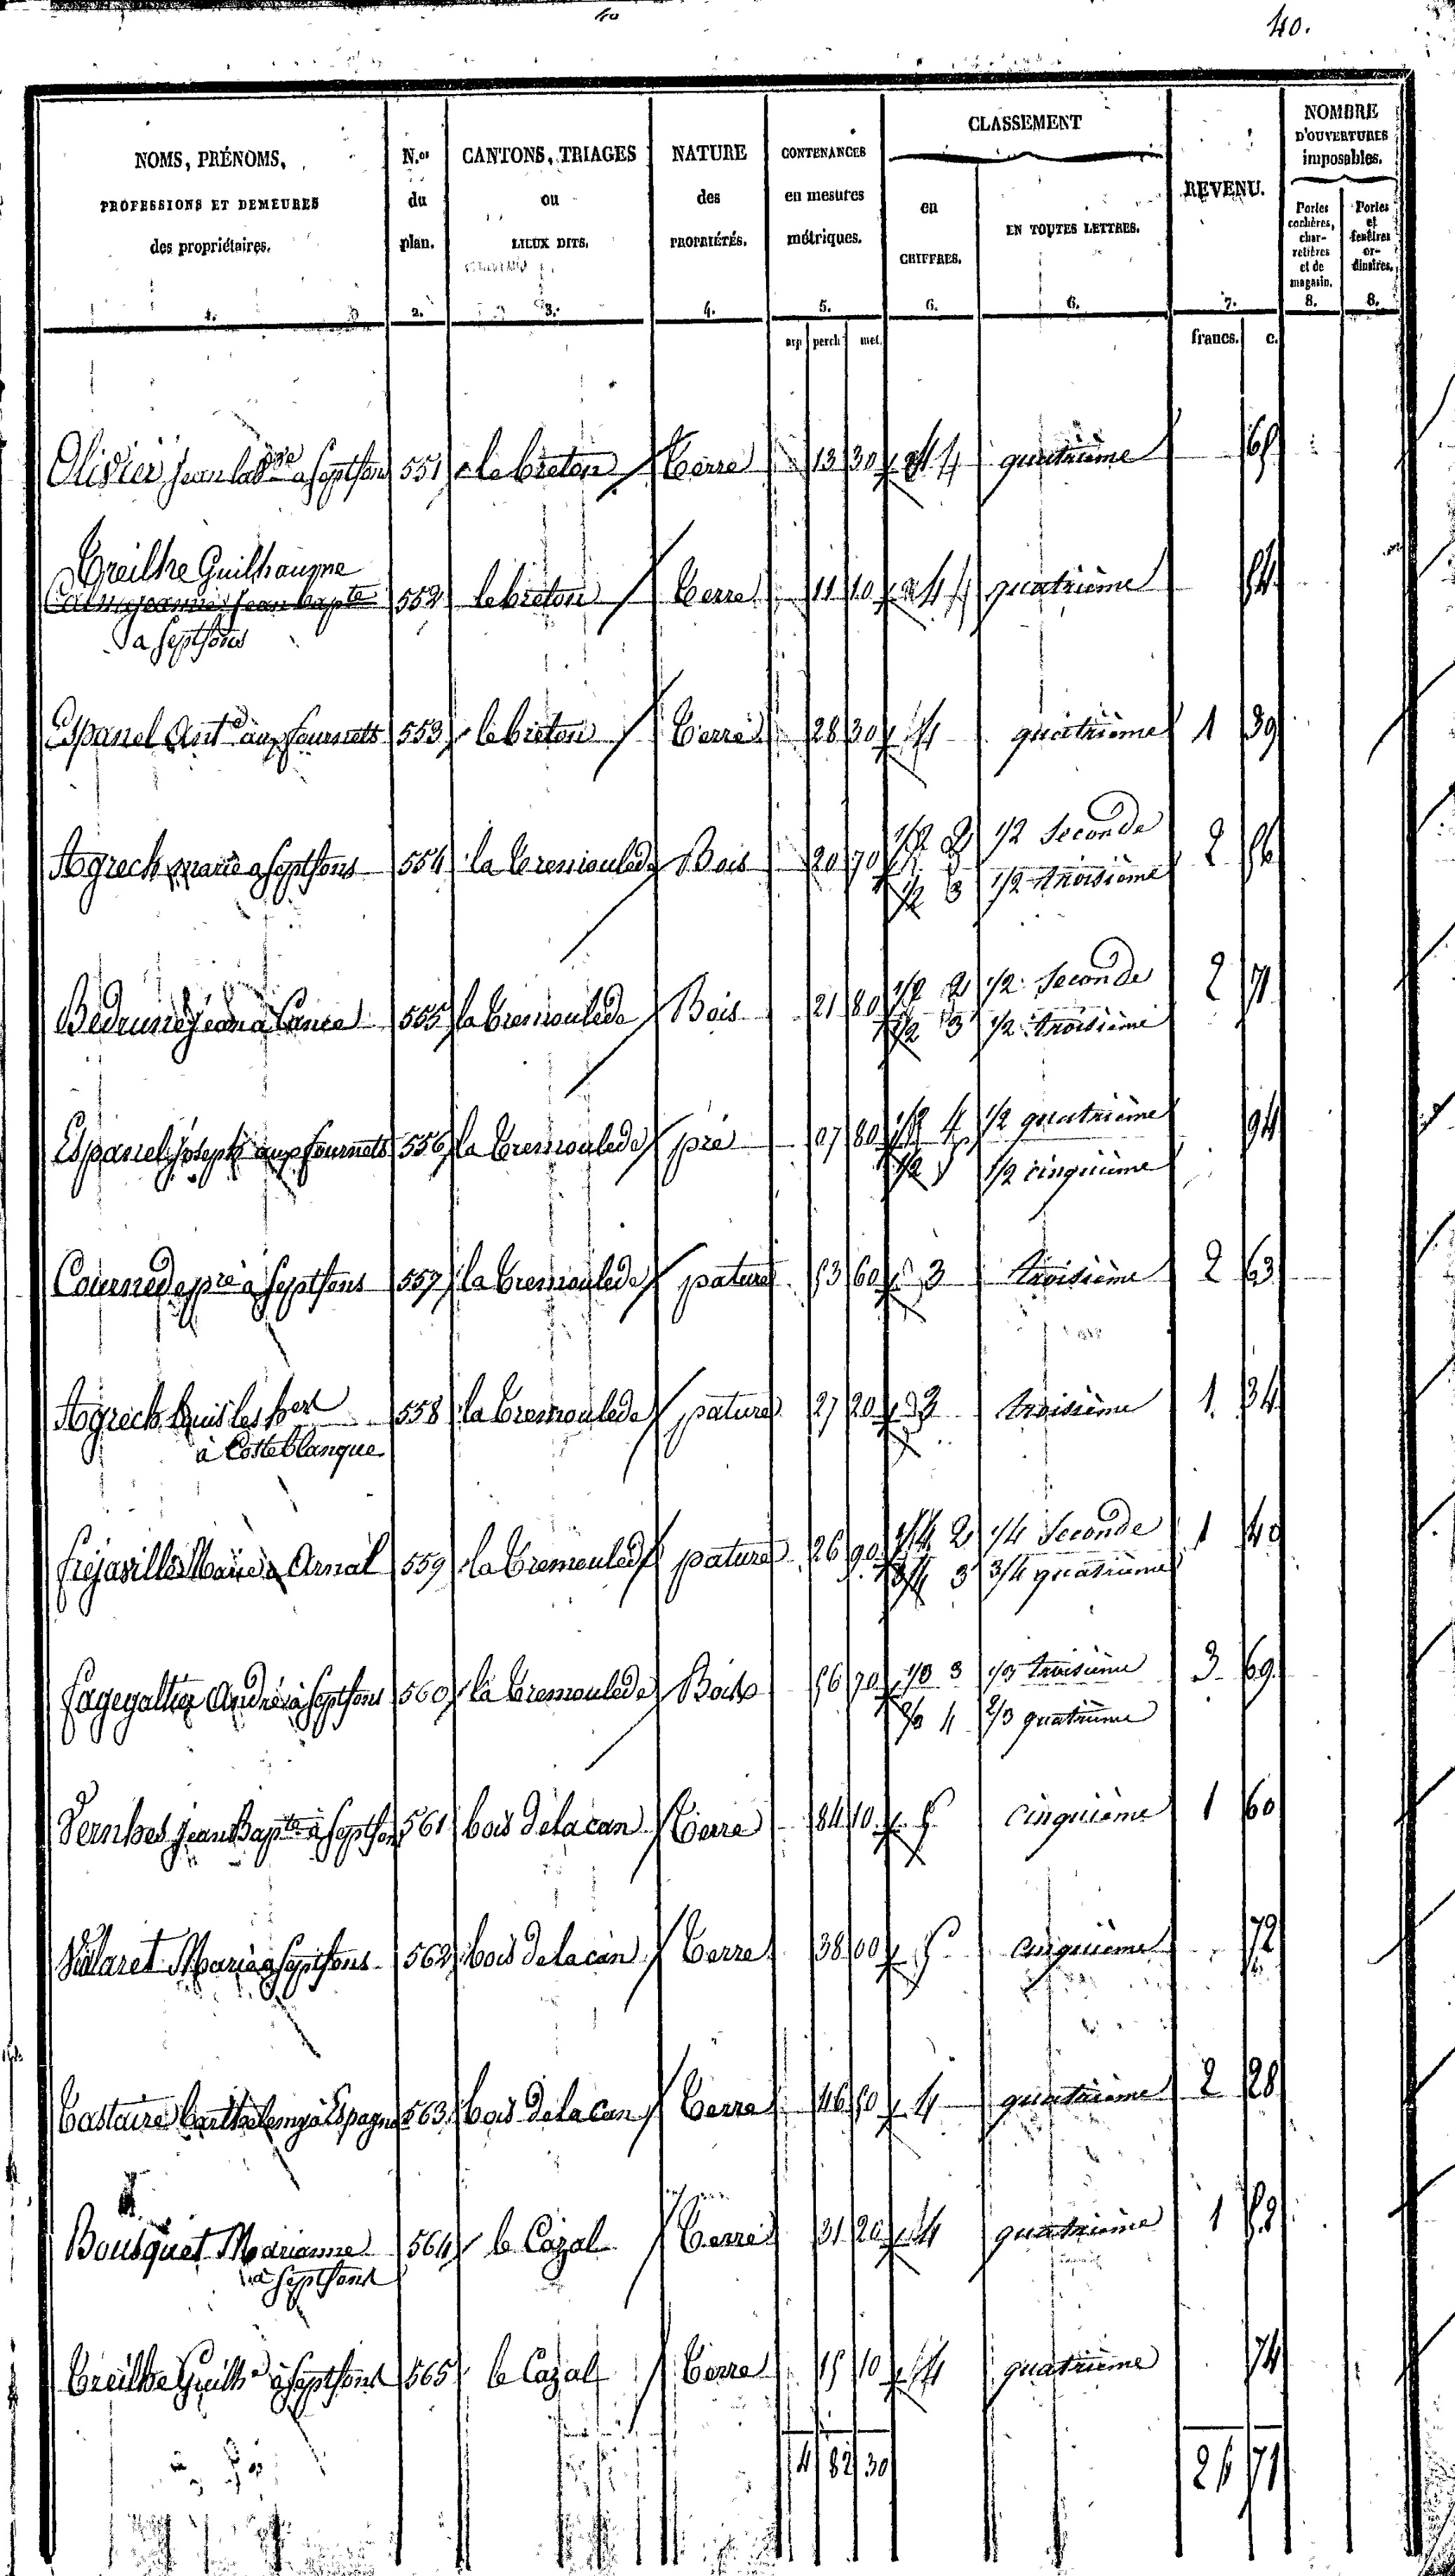 40
40.
NOMS, PRÉNOMS, PROFESSIONS ET DEMEURES des propriétaires. 1.
N.os du plan. 2.
CANTONS, TRIAGES ou LIEUX DITS. 3.
NATURE des PROPRIÉTÉS. 4.
CONTENANCES en mesures métriques. 5.
CLASSEMENT
en CHIFFRES. 6.
EN TOUTES LETTRES. 6.
REVENU. 7.
NOMBRE D'OUVERTURES imposables.
Portes cochères, charretières et de magasin. 8.
Portes et fenêtres ordinaires. 8.
arp perch met. francs. c.
Olivier Jean a Septfons 551 le breton terre 13 30 4 quatrième 65
Treilhe Guilhaume
Jean Bapte 552 le breton terre 11 10 4 quatrième 54
a Septfons
Espanel Ant.e aux fournets 553 le breton terre 28 30 4 quatrième 1 39
Agrech marie a Septfons 554 la Tremoulede Bois 20 70 1/2 2 1/2 Seconde 2 56
1/2 3 1/2 troisième
Jean a 555 la Tremoulede Bois 21 80 1/2 2 1/2 Seconde 2 71
1/2 3 1/2 troisième
Espanel Joseph aux fournets 556 la Tremoulede pré 07 80 1/2 4 1/2 quatrième 94
1/2 5 1/2 cinquième
Pre a Septfons 557 la Tremoulede pature 53 60 3 troisième 2 63
Agrech Louis les her
à Costeblanque 558 la Tremoulede pature 27 20 3 troisième 1 34
Fréjaville Marie a Arnal 559 la Tremoulede pature 26 90 1/4 2 1/4 Seconde 1 40
3/4 3 3/4 quatrième
Fagegaltier André à Septfons 560 la Tremoulede Bois 56 70 1/3 3 1/3 troisième 3 69
2/3 4 2/3 quatrième
Vernhes Jean Bapte à Septfons 561 bois de la can terre 84 10 5 Cinquième 1 60
Vialaret Marie a Septfons 562 bois de la can terre 38 00 5 Cinquième 72
Barthelemy à Espagne 563 bois de la can terre 46 50 4 quatrième 2 28
Bousquet Marianne 564 le Cazal terre 31 20 4 quatrième 1 53
à Septfons
Treilhe Guilhe à Septfons 565 le Cazal terre 15 10 4 quatrième 74
4 82 30 26 71